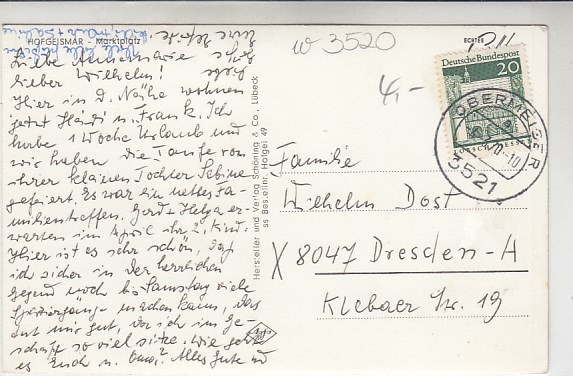 HOFGEISMAR - Marktplatz
ECHTER
w 3520
4,-
Liebe Annemarie
lieber Wilhelm!
Hier in d. Nähe wohnen
jetzt Heidi u. Frank. Ich
habe 1 Woche Urlaub und
wir haben die Taufe von
ihrer kleinen Tochter Sabine
gefeiert. Es war ein nettes Fa-
milientreffen. Gerd + Helga er-
warten im April ihr 2. Kind.
Hier ist es sehr schön, daß
ich sicher in der herrlichen
Gegend noch bis Samstag viele
Spaziergänge machen kann, das
tut mir gut, da ich im Ge-
schäft so viel sitze. Wie geht
es Euch u. Oma? Alles Gute u
Hersteller und Verlag Schöning & Co., Lübeck
ss Bes.einr. Hofgei 49
Deutsche Bundespost
20
LORSCH/HESSEN
OBERMEISER
3521
Familie
Wilhelm Dost
X 8047 Dresden-A
Klebaer Str. 19